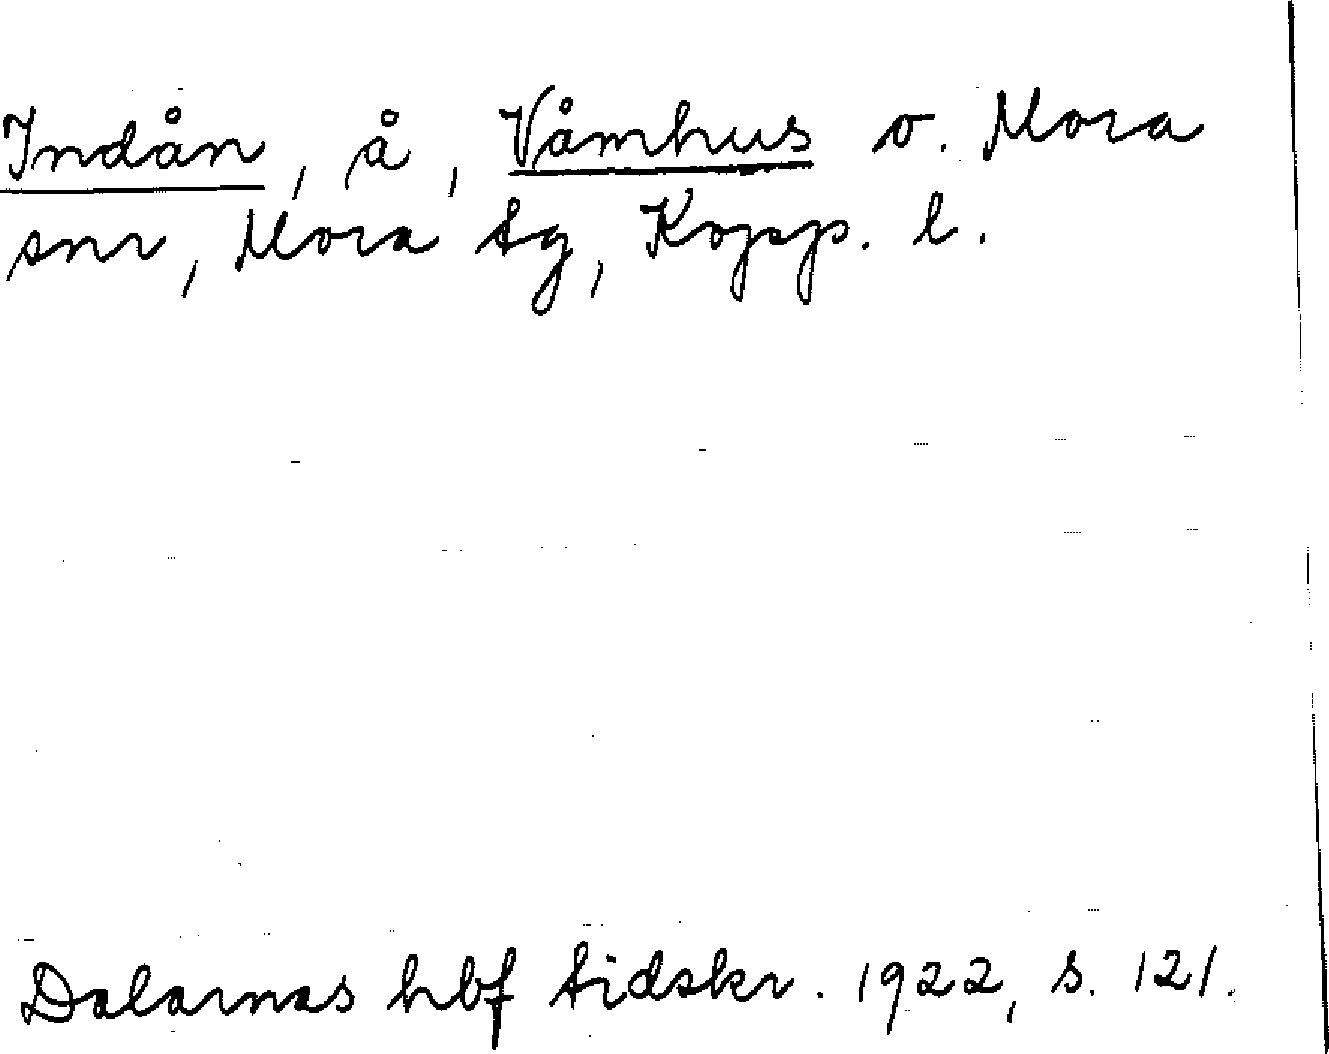 Indån, å, Våmhus o. Mora
snr, Mora tg, Kopp. l.
Dalarnas hbf tidskr. 1922, s. 121.